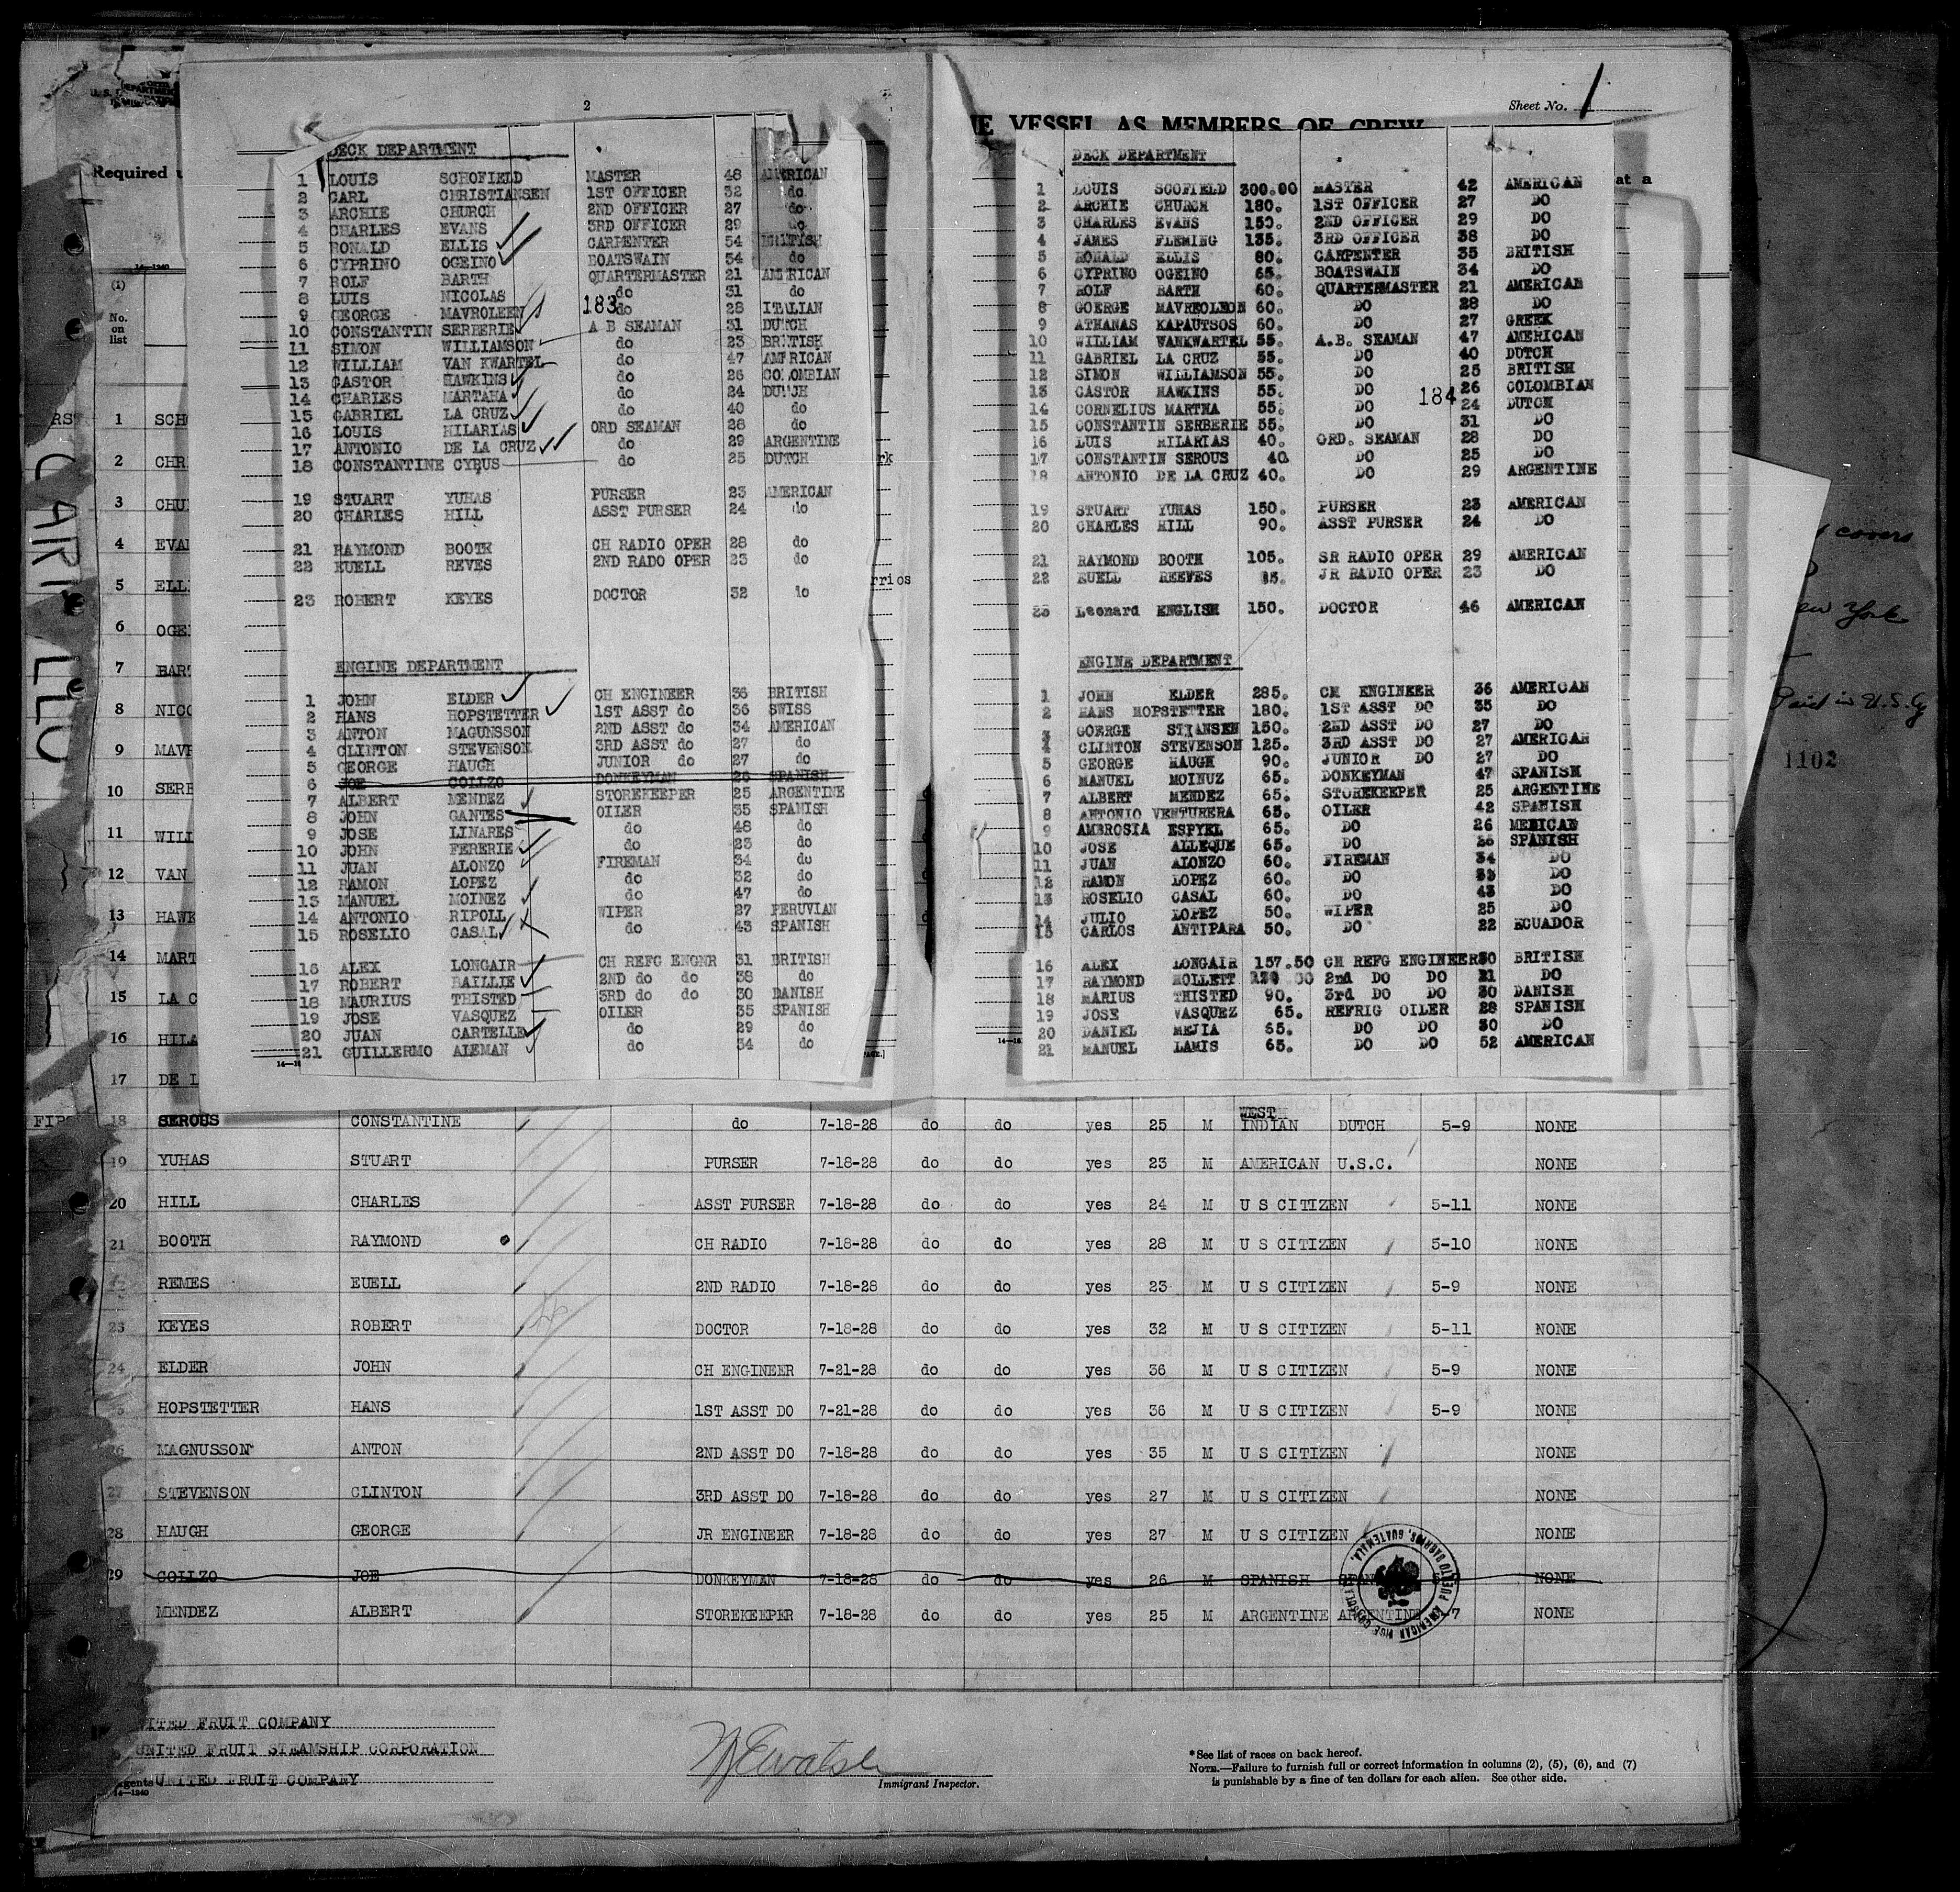 2
Sheet No. 1
HE VESSEL AS MEMBERS OF CREW
Required
at a
DECK DEPARTMENT
1 LOUIS SCHOFIELD MASTER 48 AMERICAN
2 CARL CHRISTIANSEN 1ST OFFICER 32 do
3 ARCHIE CHURCH 2ND OFFICER 27 do
4 CHARLES EVANS 3RD OFFICER 29 do
5 RONALD ELLIS CARPENTER 54 BRITISH
6 CYPRINO OGEINO BOATSWAIN 34 do
7 ROLF BARTH QUARTERMASTER 21 AMERICAN
8 LUIS NICOLAS do 31 do
9 GEORGE MAVROLEEN 183 do 28 ITALIAN
10 CONSTANTIN SERBERIE A B SEAMAN 31 DUTCH
11 SIMON WILLIAMSON do 23 BRITISH
12 WILLIAM VAN KWARTEL do 47 AMERICAN
13 CASTOR HAWKINS do 26 COLOMBIAN
14 CHARLES MARTAHA do 24 DUTCH
15 GABRIEL LA CRUZ do 40 do
16 LOUIS HILARIAS ORD SEAMAN 28 do
17 ANTONIO DE LA CRUZ do 29 ARGENTINE
18 CONSTANTINE CYRUS do 25 DUTCH
19 STUART YUHAS PURSER 23 AMERICAN
20 CHARLES HILL ASST PURSER 24 do
21 RAYMOND BOOTH CH RADIO OPER 28 do
22 EUELL REVES 2ND RADO OPER 23 do
23 ROBERT KEYES DOCTOR 32 do
ENGINE DEPARTMENT
1 JOHN ELDER CH ENGINEER 36 BRITISH
2 HANS HOPSTETTER 1ST ASST do 36 SWISS
3 ANTON MAGUNSSON 2ND ASST do 34 AMERICAN
4 CLINTON STEVENSON 3RD ASST do 27 do
5 GEORGE HAUGH JUNIOR do 27 do
6 JOE COLLZO DONKEYMAN 26 SPANISH
7 ALBERT MENDEZ STOREKEEPER 25 ARGENTINE
8 JOHN GANTES OILER 35 SPANISH
9 JOSE LINARES do 48 do
10 JOHN FERERIE do 23 do
11 JUAN ALONZO FIREMAN 34 do
12 RAMON LOPEZ do 32 do
13 MANUEL MOINEZ do 47 do
14 ANTONIO RIPOLL WIPER 27 PERUVIAN
15 ROSELIO CASAL do 43 SPANISH
16 ALEX LONGAIR CH REFG ENGNR 31 BRITISH
17 ROBERT BAILLIE 2ND do do 38 do
18 MAURIUS THISTED 3RD do do 30 DANISH
19 JOSE VASQUEZ OILER 35 SPANISH
20 JUAN CARTELLE do 29 do
21 GUILLERMO ALEMAN do 34 do
DECK DEPARTMENT
1 LOUIS SCOFIELD 300.00 MASTER 42 AMERICAN
2 ARCHIE CHURCH 180. 1ST OFFICER 27 DO
3 CHARLES EVANS 150. 2ND OFFICER 29 DO
4 JAMES FLEMING 135. 3RD OFFICER 38 DO
5 RONALD ELLIS 80. CARPENTER 35 BRITISH
6 CYPRINO OGEINO 65. BOATSWAIN 34 DO
7 ROLF BARTH 60. QUARTERMASTER 21 AMERICAN
8 GOERGE MAVREOLEON 60. DO 28 DO
9 ATHANAS KAPAUTSOS 60. DO 27 GREEK
10 WILLIAM VANKWARTEL 55. A.B. SEAMAN 47 AMERICAN
11 GABRIEL LA CRUZ 55. DO 40 DUTCH
12 SIMON WILLIAMSON 55. DO 25 BRITISH
13 CASTOR HAWKINS 55. DO 184 26 COLOMBIAN
14 CORNELIUS MARTHA 55. DO 24 DUTCH
15 CONSTANTIN SERBERIE 55. DO 31 DO
16 LUIS HILARIAS 40. ORD. SEAMAN 28 DO
17 CONSTANTIN SEROUS 40 DO 25 DO
18 ANTONIO DE LA CRUZ 40. DO 29 ARGENTINE
19 STUART YUHAS 150. PURSER 23 AMERICAN
20 CHARLES HILL 90. ASST PURSER 24 DO
21 RAYMOND BOOTH 105. SR RADIO OPER 29 AMERICAN
22 EUELL REEVES 85. JR RADIO OPER 23 DO
23 Leonard ENGLISH 150. DOCTOR 46 AMERICAN
ENGINE DEPARTMENT
1 JOHN ELDER 285. CH ENGINEER 36 AMERICAN
2 HANS HOPSTETTER 180. 1ST ASST DO 35 DO
3 GOERGE STJANSEN 150. 2ND ASST DO 27 DO
4 CLINTON STEVENSON 125. 3RD ASST DO 27 AMERICAN
5 GEORGE HAUGH 90. JUNIOR DO 27 DO
6 MANUEL MOINUZ 65. DONKEYMAN 47 SPANISH
7 ALBERT MENDEZ 65. STOREKEEPER 25 ARGENTINE
8 ANTONIO VENTURERA 65. OILER 42 SPANISH
9 AMBROSIA ESPYEL 65. DO 26 MEXICAN
10 JOSE ALLEQUE 65. DO 26 SPANISH
11 JUAN ALONZO 60. FIREMAN 34 DO
12 RAMON LOPEZ 60. DO 33 DO
13 ROSELIO CASAL 60. DO 43 DO
14 JULIO LOPEZ 50. WIPER 25 DO
15 CARLOS ANTIPARA 50. DO 22 ECUADOR
16 ALEX LONGAIR 157.50 CH REFG ENGINEER 30 BRITISH
17 RAYMOND MOLLETT 2nd DO DO 21 DO
18 MARIUS THISTED 90. 3rd DO DO 30 DANISH
19 JOSE VASQUEZ 65. REFRIG OILER 28 SPANISH
20 DANIEL MEJIA 65. DO DO 30 DO
21 MANUEL LAMIS 65. DO DO 52 AMERICAN
(1)
No. on list
1 SCHO
2 CHR
3 CHU
4 EVA
5 ELL
6 OGE
7 BART
8 NICO
9 MAVR
10 SERB
11 WILL
12 VAN
13 HAWK
14 MART
15 LA C
16 HILA
17 DE L
rk
rrios
covers
New York
Paid in U.S.G
1102
18 SEROUS CONSTANTINE do 7-18-28 do do yes 25 M WEST INDIAN DUTCH 5-9 NONE
19 YUHAS STUART PURSER 7-18-28 do do yes 23 M AMERICAN U.S.C. NONE
20 HILL CHARLES ASST PURSER 7-18-28 do do yes 24 M U S CITIZEN 5-11 NONE
21 BOOTH RAYMOND CH RADIO 7-18-28 do do yes 28 M U S CITIZEN 5-10 NONE
REMES EUELL 2ND RADIO 7-18-28 do do yes 23 M U S CITIZEN 5-9 NONE
23 KEYES ROBERT DOCTOR 7-18-28 do do yes 32 M U S CITIZEN 5-11 NONE
24 ELDER JOHN CH ENGINEER 7-21-28 do do yes 36 M U S CITIZEN 5-9 NONE
HOPSTETTER HANS 1ST ASST DO 7-21-28 do do yes 36 M U S CITIZEN 5-9 NONE
26 MAGNUSSON ANTON 2ND ASST DO 7-18-28 do do yes 35 M U S CITIZEN NONE
27 STEVENSON CLINTON 3RD ASST DO 7-18-28 do do yes 27 M U S CITIZEN NONE
28 HAUGH GEORGE JR ENGINEER 7-18-28 do do yes 27 M U S CITIZEN NONE
29 COLLZO JOE DONKEYMAN 7-18-28 do do yes 26 M SPANISH SPAN NONE
MENDEZ ALBERT STOREKEEPER 7-18-28 do do yes 25 M ARGENTINE ARGENTINE 7 NONE
AMERICAN VICE CONSULATE PUERTO BARRIOS, GUATEMALA.
UNITED FRUIT COMPANY
UNITED FRUIT STEAMSHIP CORPORATION
Agents UNITED FRUIT COMPANY
14—1240
Immigrant Inspector.
*See list of races on back hereof.
NOTE.—Failure to furnish full or correct information in columns (2), (5), (6), and (7)
is punishable by a fine of ten dollars for each alien. See other side.